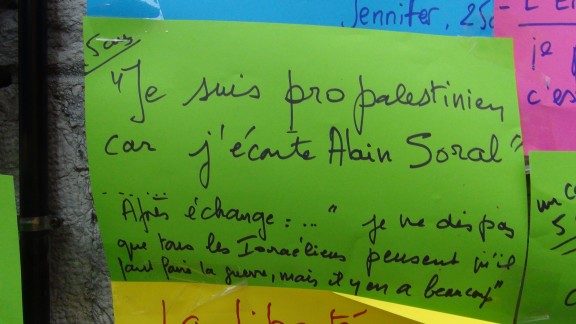 Jennifer, 25
5 ans
"Je suis pro palestinien
car j'écoute Alain Soral"
Après échange : ... " je ne dis pas
que tous les Israéliens pensent qu'il
faut faire la guerre, mais il y en a beaucoup"
je
c'es
un
5
La liberté